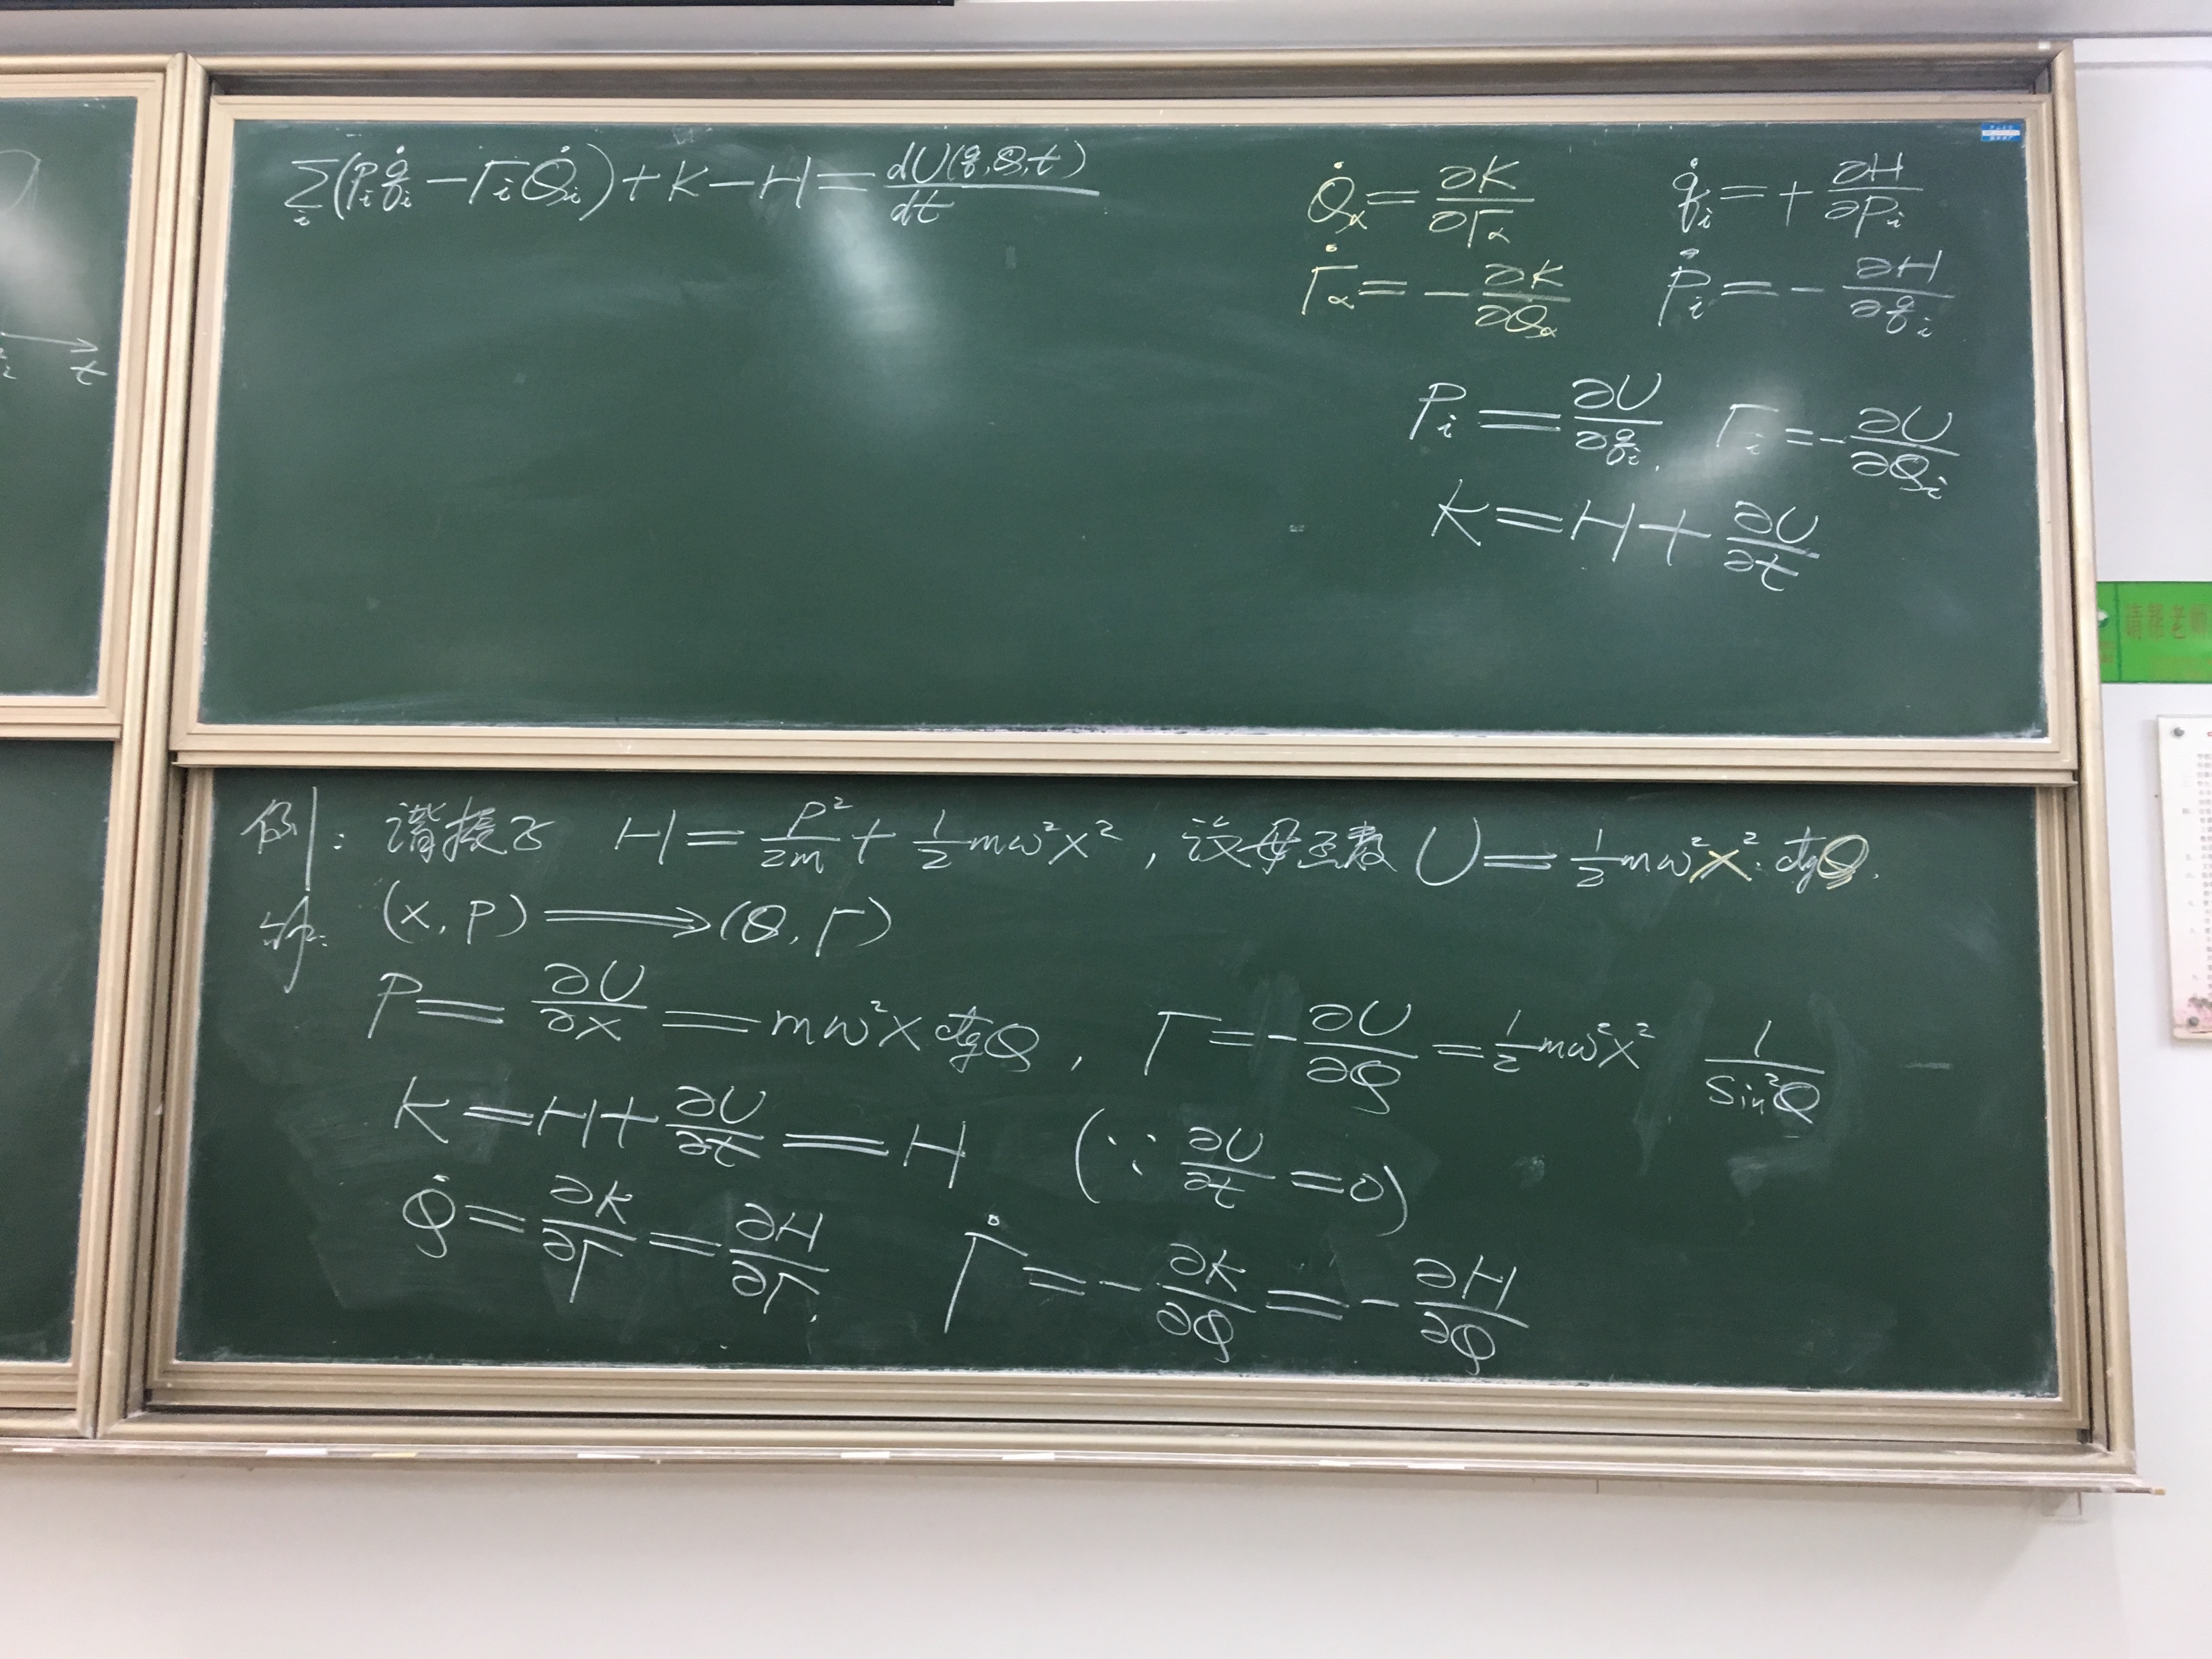 Σ_i (p_i q̇_i − Γ_i Q̇_i) + K − H = dU(q,Q,t)/dt
Q̇_α = ∂K/∂Γ_α
q̇_i = + ∂H/∂p_i
Γ̇_α = − ∂K/∂Q_α
Ṗ_i = − ∂H/∂q_i
P_i = ∂U/∂q_i, Γ_i = − ∂U/∂Q_i
K = H + ∂U/∂t
例: 谐振子 H = P²/2m + 1/2 mω²x², 设母函数 U = 1/2 mω²x² ctgQ.
解: (x, P) ⟹ (Q, Γ)
P = ∂U/∂x = mω²x ctgQ, Γ = − ∂U/∂Q = 1/2 mω²x² 1/sin²Q
K = H + ∂U/∂t = H (∵ ∂U/∂t = 0)
Q̇ = ∂K/∂Γ = ∂H/∂Γ, Γ̇ = − ∂K/∂Q = − ∂H/∂Q
t
请帮老师